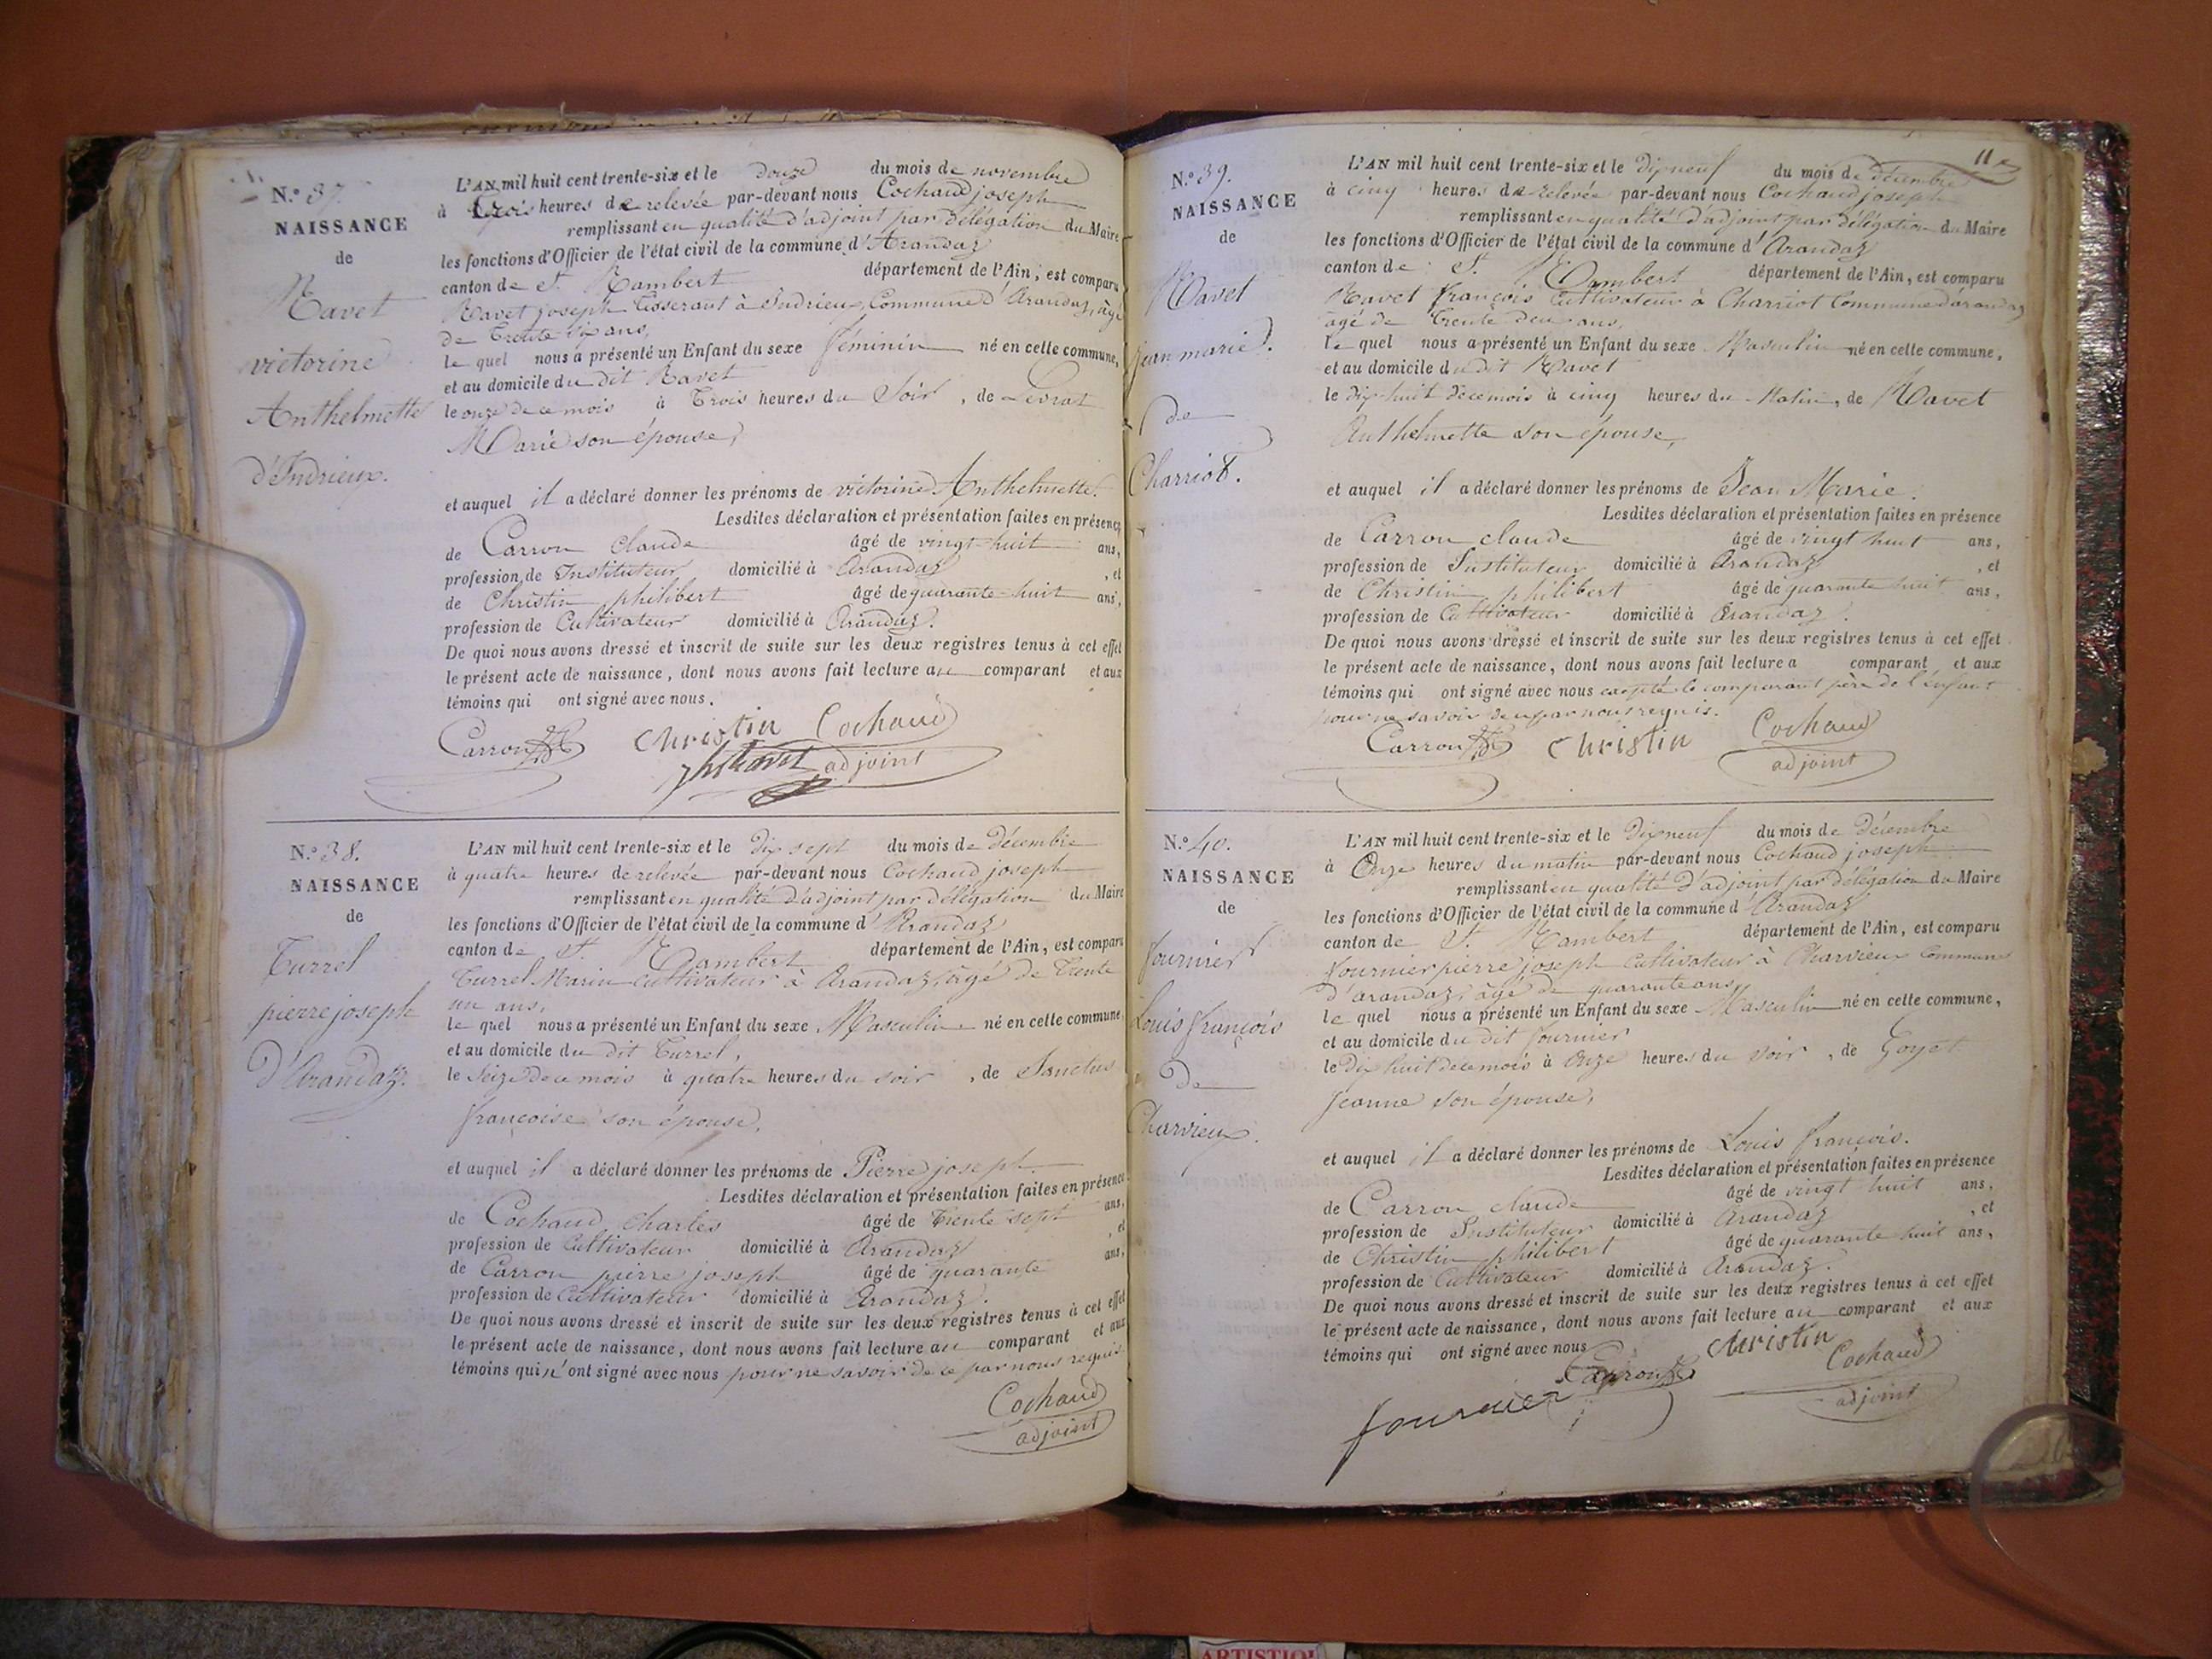 N.º 37.
NAISSANCE
de
Ravet
victorine
Anthelmette
d'Indrieux.
L'AN mil huit cent trente-six et le douze du mois de novembre
à trois heures de relevée par-devant nous Cochaud joseph
remplissant en qualité d'adjoint par délégation du Maire
les fonctions d'Officier de l'état civil de la commune d'Arandaz
canton de St. Rambert département de l'Ain, est comparu
Ravet joseph tisserant à Indrieux, Commune d'Arandaz, âgé
de trente six ans,
le quel nous a présenté un Enfant du sexe féminin né en cette commune,
et au domicile du dit Ravet
le onze de ce mois à trois heures du Soir, de Levrat
Marie son épouse,
et auquel il a déclaré donner les prénoms de victorine Anthelmette.
Lesdites déclaration et présentation faites en présence
de Carron claude âgé de vingt-huit ans,
profession de Instituteur domicilié à Arandaz, et
de Christin philibert âgé de quarante-huit ans,
profession de Cultivateur domicilié à Arandaz.
De quoi nous avons dressé et inscrit de suite sur les deux registres tenus à cet effet
le présent acte de naissance, dont nous avons fait lecture au comparant et aux
témoins qui ont signé avec nous.
Carron christin Cochaud
adjoint
N.º 38.
NAISSANCE
de
Turrel
pierre joseph
d'Arandaz.
L'AN mil huit cent trente-six et le dix sept du mois de décembre
à quatre heures de relevée par-devant nous Cochaud joseph
remplissant en qualité d'adjoint par délégation du Maire
les fonctions d'Officier de l'état civil de la commune d'Arandaz
canton de St. Rambert département de l'Ain, est comparu
Turrel Marin cultivateur à Arandaz, âgé de trente
un ans,
le quel nous a présenté un Enfant du sexe Masculin né en cette commune,
et au domicile du dit Turrel,
le Seize de ce mois à quatre heures du soir, de Sanctus
françoise son épouse,
et auquel il a déclaré donner les prénoms de Pierre joseph.
Lesdites déclaration et présentation faites en présence
de Cochaud charles âgé de trente sept ans,
profession de Cultivateur domicilié à Arandaz, et
de Carron pierre joseph âgé de quarante ans,
profession de Cultivateur domicilié à Arandaz.
De quoi nous avons dressé et inscrit de suite sur les deux registres tenus à cet effet
le présent acte de naissance, dont nous avons fait lecture au comparant et aux
témoins qui n'ont signé avec nous pour ne savoir de ce par nous requis
Cochaud
adjoint
11e
N.º 39.
NAISSANCE
de
Ravet
jean marie.
de
Charriot.
L'AN mil huit cent trente-six et le dix neuf du mois de décembre
à cinq heures de relevée par-devant nous Cochaud joseph
remplissant en qualité d'adjoint par délégation du Maire
les fonctions d'Officier de l'état civil de la commune d'Arandaz
canton de St. Rambert département de l'Ain, est comparu
Ravet françois cultivateur à Charriot Commune d'arandaz
âgé de trente deux ans,
le quel nous a présenté un Enfant du sexe Masculin né en cette commune,
et au domicile du dit Ravet
le dix-huit de ce mois à cinq heures du Matin, de Ravet
Anthelmette son épouse,
et auquel il a déclaré donner les prénoms de Jean Marie.
Lesdites déclaration et présentation faites en présence
de Carron claude âgé de vingt huit ans,
profession de Instituteur domicilié à Arandaz, et
de Christin philibert âgé de quarante huit ans,
profession de Cultivateur domicilié à Arandaz.
De quoi nous avons dressé et inscrit de suite sur les deux registres tenus à cet effet
le présent acte de naissance, dont nous avons fait lecture a comparant et aux
témoins qui ont signé avec nous excepté le comparant père de l'enfant
pour ne savoir de ce par nous requis.
Carron christin Cochaud
adjoint
N.º 40.
NAISSANCE
de
fournier
Louis françois
De
Charvieux.
L'AN mil huit cent trente-six et le dix neuf du mois de décembre
à Onze heures du matin par-devant nous Cochaud joseph
remplissant en qualité d'adjoint par délégation du Maire
les fonctions d'Officier de l'état civil de la commune d'Arandaz
canton de St. Rambert département de l'Ain, est comparu
fournier pierre joseph cultivateur à Charvieux Commune
d'arandaz, âgé de quarante ans,
le quel nous a présenté un Enfant du sexe Masculin né en cette commune,
et au domicile du dit fournier
le Dix huit de ce mois à Onze heures du soir, de Goyet
Jeanne son épouse,
et auquel il a déclaré donner les prénoms de Louis françois.
Lesdites déclaration et présentation faites en présence
de Carron claude âgé de vingt huit ans,
profession de Instituteur domicilié à Arandaz, et
de Christin philibert âgé de quarante huit ans,
profession de Cultivateur domicilié à Arandaz.
De quoi nous avons dressé et inscrit de suite sur les deux registres tenus à cet effet
le présent acte de naissance, dont nous avons fait lecture au comparant et aux
témoins qui ont signé avec nous christin
Carron Cochaud
fournier adjoint